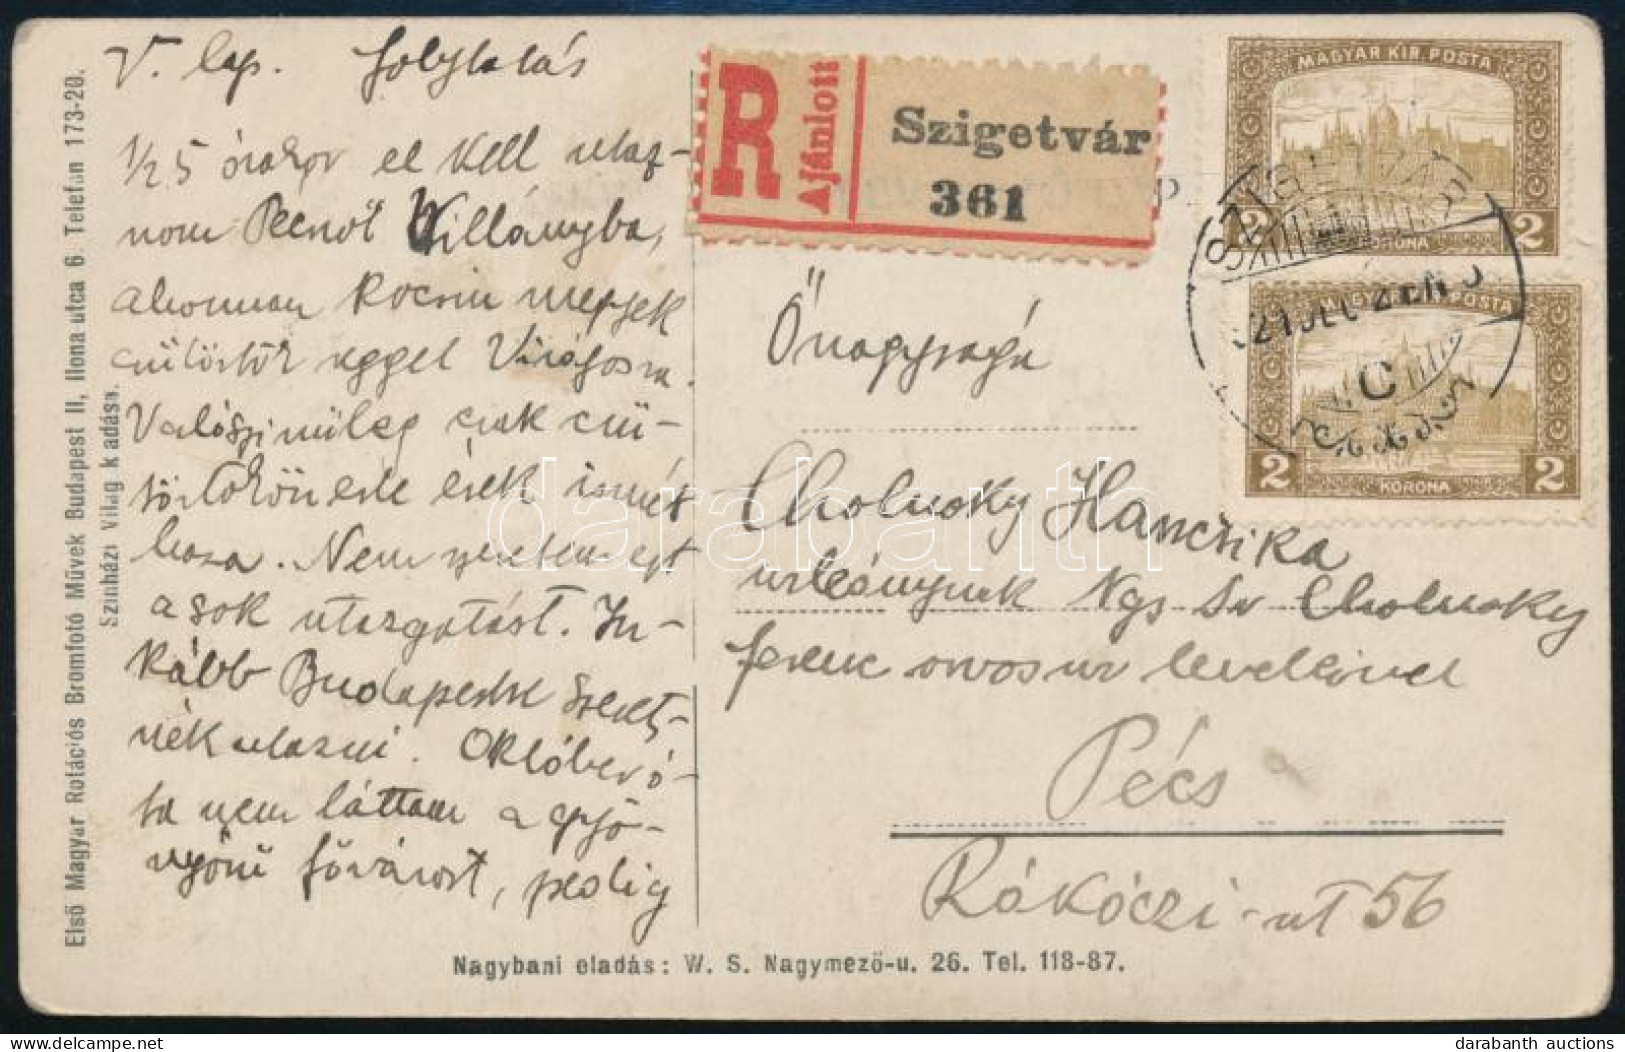 V. lap. folytatás
1/2 5 órakor el kell utaz-
nom Pécsről Villányba,
ahonnan kocsin megyek
csütörtök reggel Virágosra.
Valószinüleg csak csü-
törtökön este érek ismét
haza. Nem szeretem ezt
a sok utazgatást. In-
kább Budapestre szeret-
nék utazni. Október ó-
ta nem láttam a gyö-
nyörü fővárost, pedig
Első Magyar Rotációs Bromfotó Művek Budapest II, Ilona utca 6. Telefon 173-20.
Szinházi Világ kiadása.
R
Ajánlott
Szigetvár
361
MAGYAR KIR. POSTA
2 KORONA 2
MAGYAR KIR. POSTA
2 KORONA 2
SZIGETVÁR
921 DEC
C
Őnagysága
Cholnoky Hanczika
urleánynak Ngs Dr Cholnoky
Ferenc orvosur leveleivel
Pécs
Rákóczi-ut 56
Nagybani eladás: W. S. Nagymező-u. 26. Tel. 118-87.
darabanth
darabanth auctions